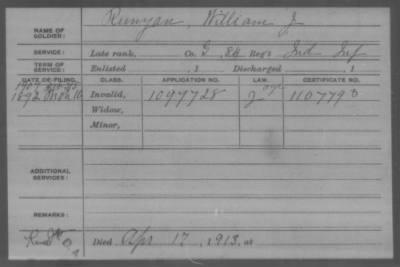 NAME OF SOLDIER: Runyan, William J
SERVICE: Late rank, Co. G, 86 Reg't Ind Inf
TERM OF SERVICE: Enlisted , 1 Discharged , 1
DATE OF FILING. CLASS. APPLICATION NO. LAW. CERTIFICATE NO.
1892 Invalid, 1097728 1107798
Widow,
Minor,
ADDITIONAL SERVICES:
REMARKS:
Died Apr 17, 1913, at